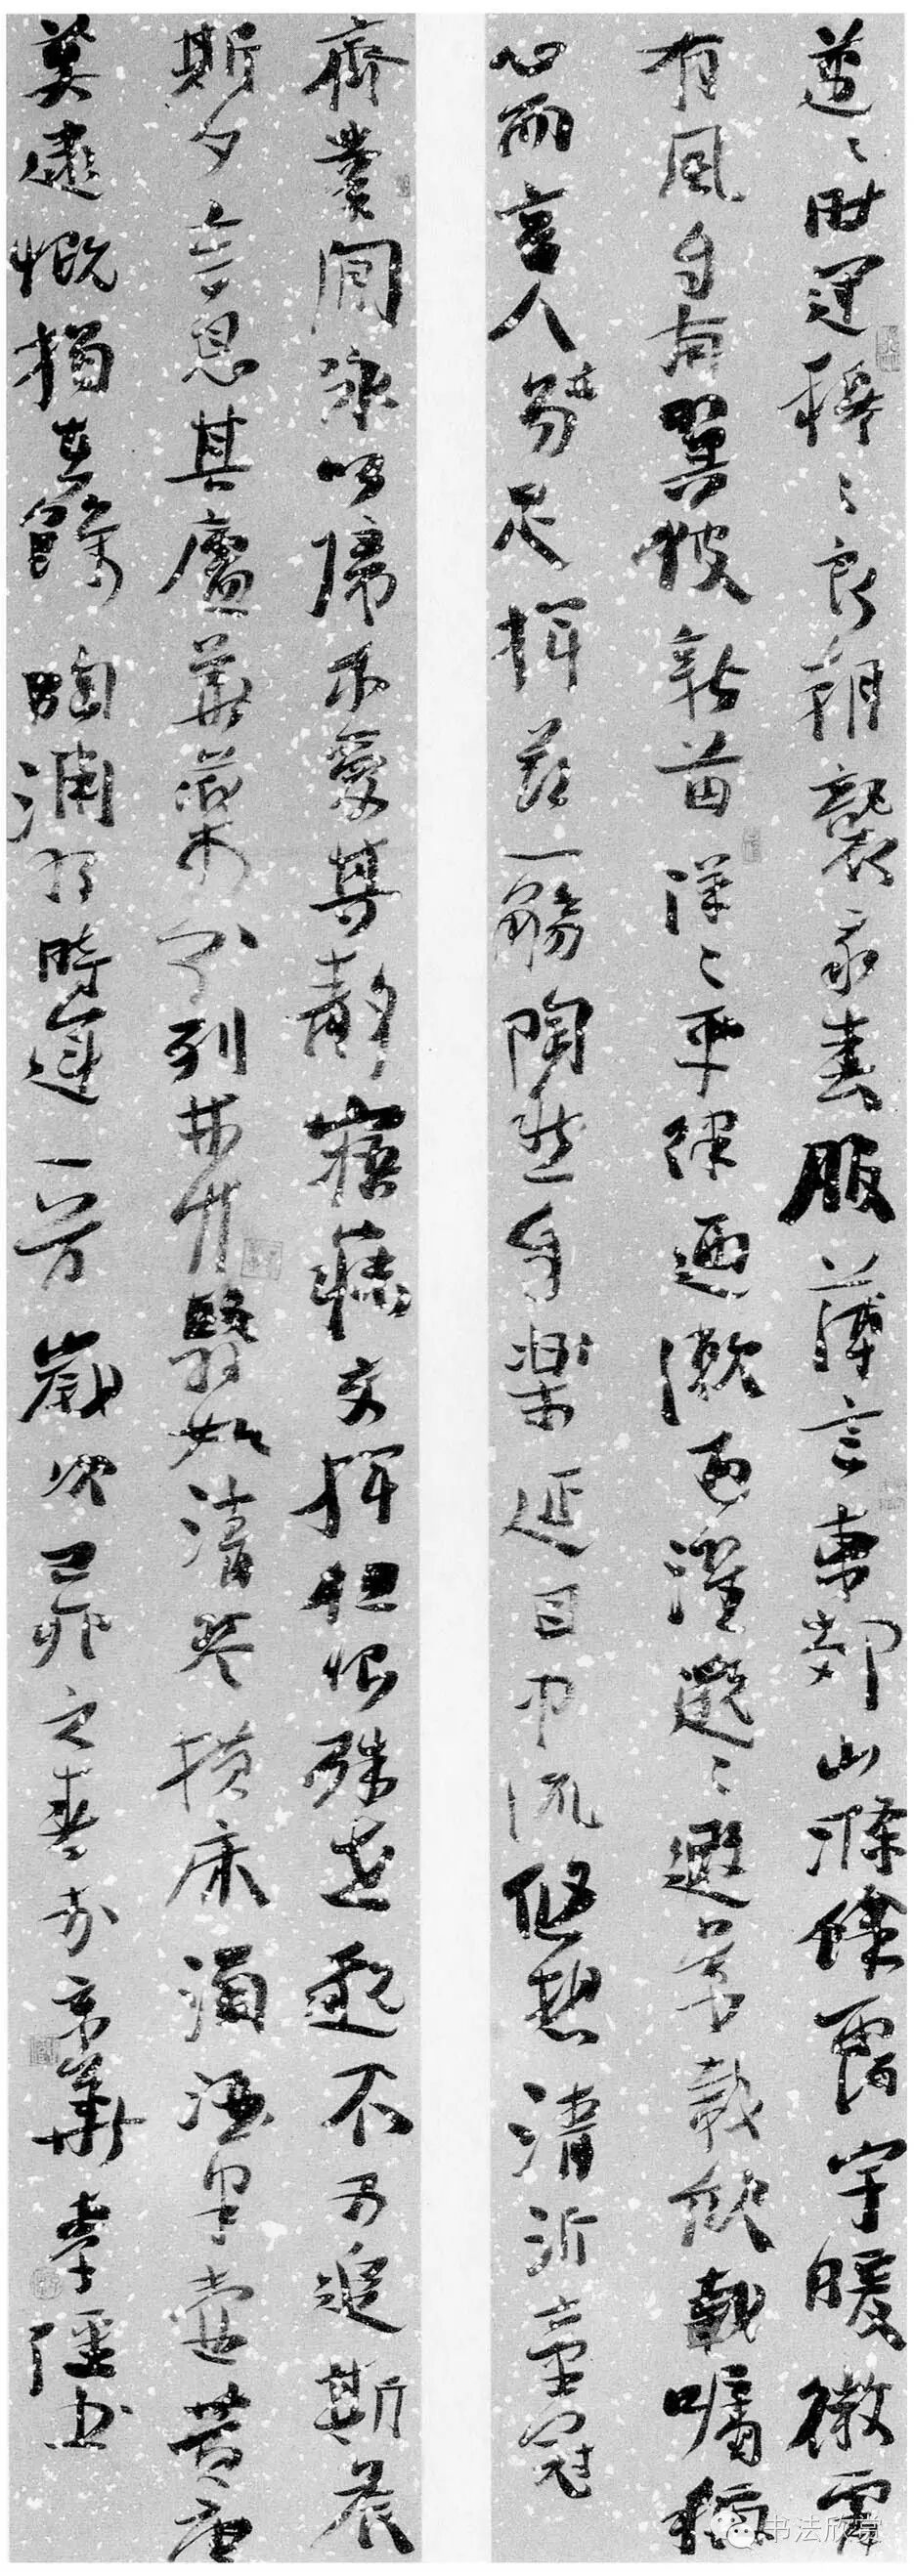 邁〻時運穆〻良朝襲我春服薄言東郊山滌餘靄宇暖微霄
有風自南翼彼新苗洋〻平津迺漱迺濯邈〻遐景載欣載囑稱
心而言人易足揮茲一觴陶然自樂延目中流悠想清沂童冠
齊業閒詠以歸亦愛其靜寤寐交揮但恨殊世邈不可追斯晨
斯夕言息其廬華藥分列林竹翳如清琴橫床濁酒半壺黃唐
莫逮慨獨在餘 陶淵明時運一首 歲次己卯之春於京華李書
书法欣赏